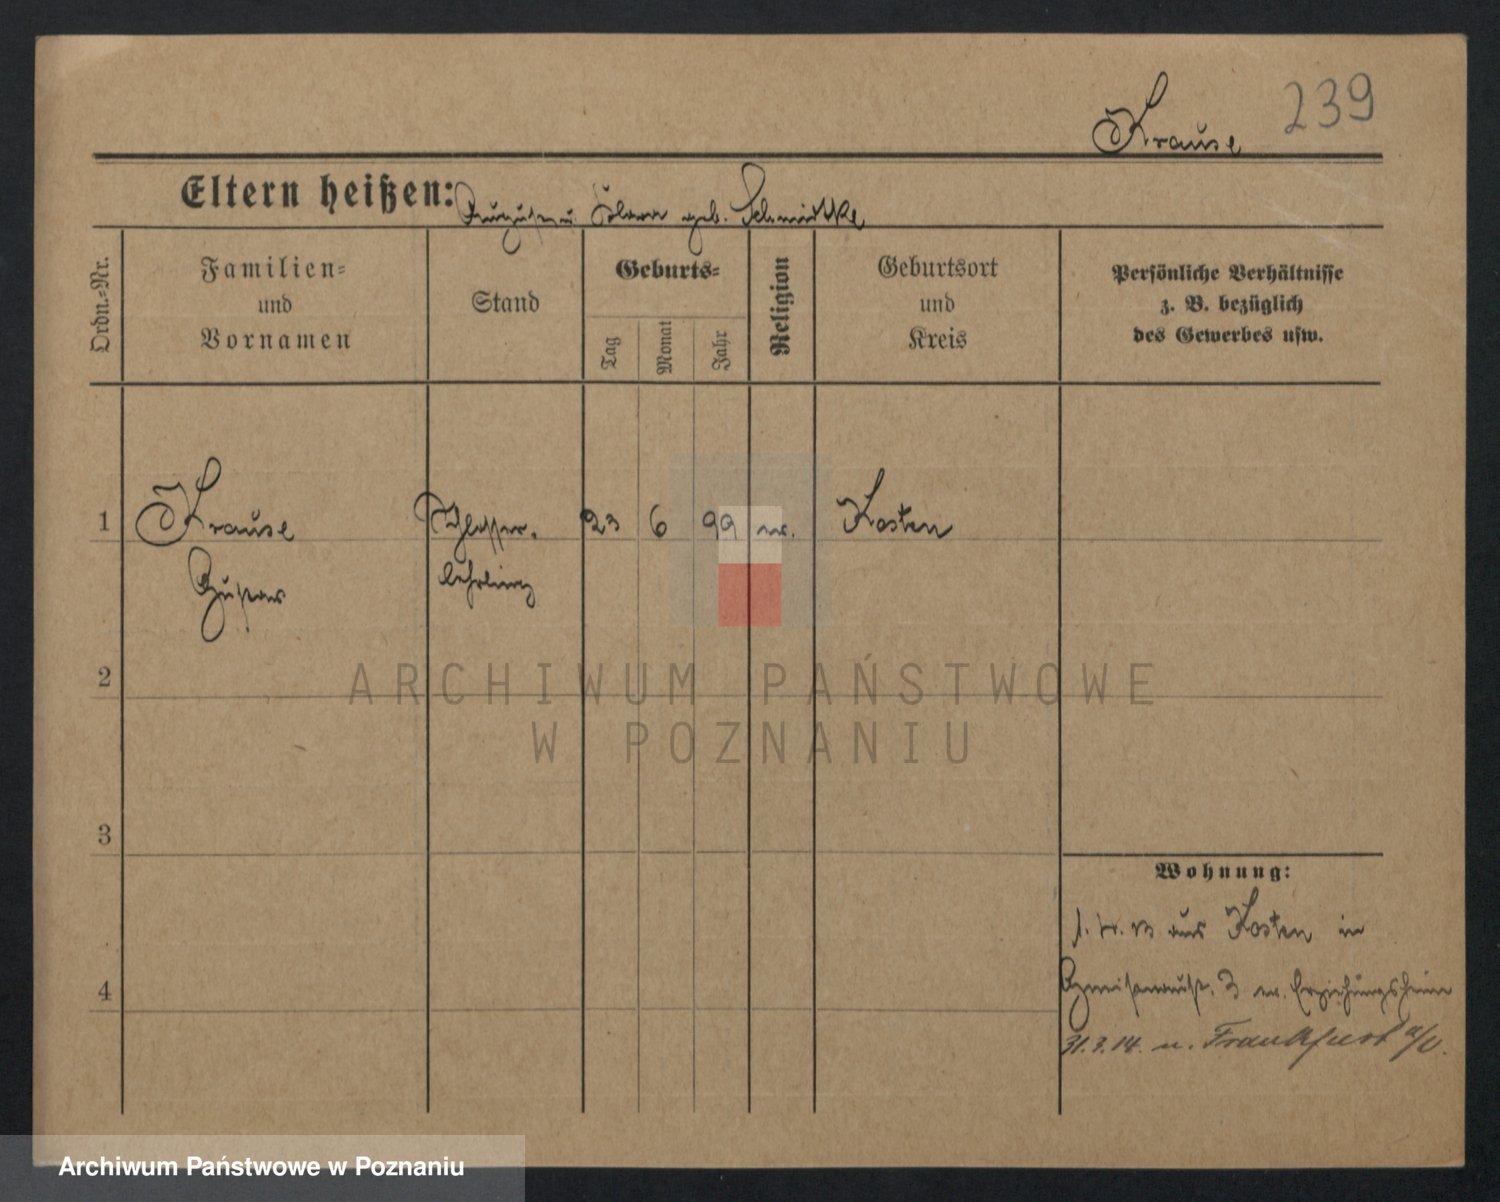 239
Krause
Eltern heißen: August u. Clara geb. Schmidtke
Ordn.-Nr.
Familien=
und
Vornamen
Stand
Geburts=
Tag
Monat
Jahr
Religion
Geburtsort
und
Kreis
Persönliche Verhältnisse
z. B. bezüglich
des Gewerbes usw.
1 Krause Schlosser- 23 6 99 ev. Kosten
Gustav lehrling
2
3
4
Wohnung:
13 aus Kosten in
3 ev. Erziehungsheim
31.3.14. n. Frankfurt a/O.
ARCHIWUM PAŃSTWOWE
W POZNANIU
Archiwum Państwowe w Poznaniu